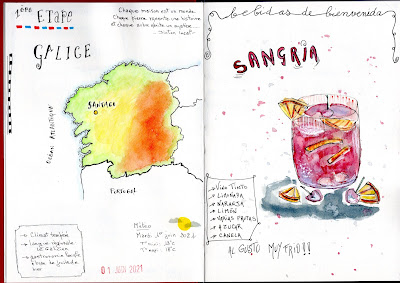 1ère ETAPE
GALICE
Chaque maison est un monde.
Chaque pierre raconte une histoire
et chaque arbre abrite un mystère
SANTIAGO
OCEAN ATLANTIQUE
PORTUGAL
→ Climat tempéré
→ langue régionale
→ gastronomie
Météo
Mardi 1er juin 2021
01 JUIN 2021
bebidas de bienvenida
SANGRIA
→ VINO TINTO
→ LIMONADA
→ NARANJA
→ LIMÓN
→ VARIAS FRUTAS
→ AZUCAR
→ CANELA
AL GUSTO MUY FRIO!!